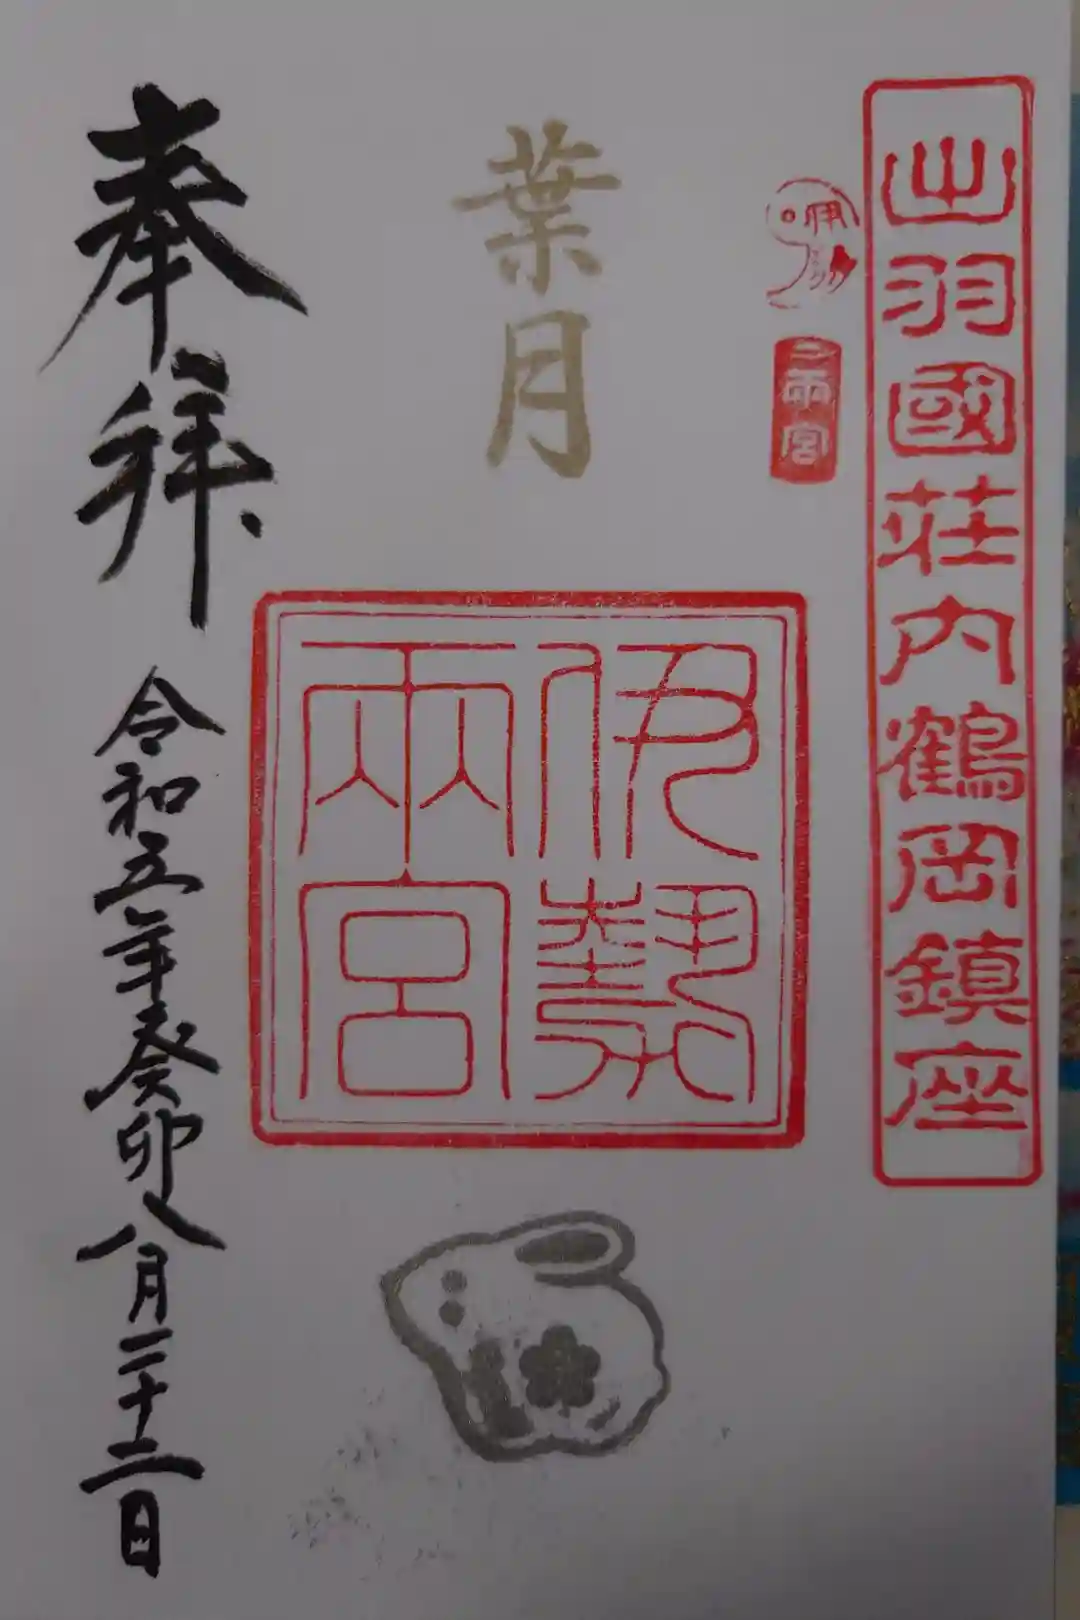 出羽國荘内鶴岡鎮座
伊勢
両宮
葉月
伊勢
両宮
奉拝
令和五年癸卯八月二十二日